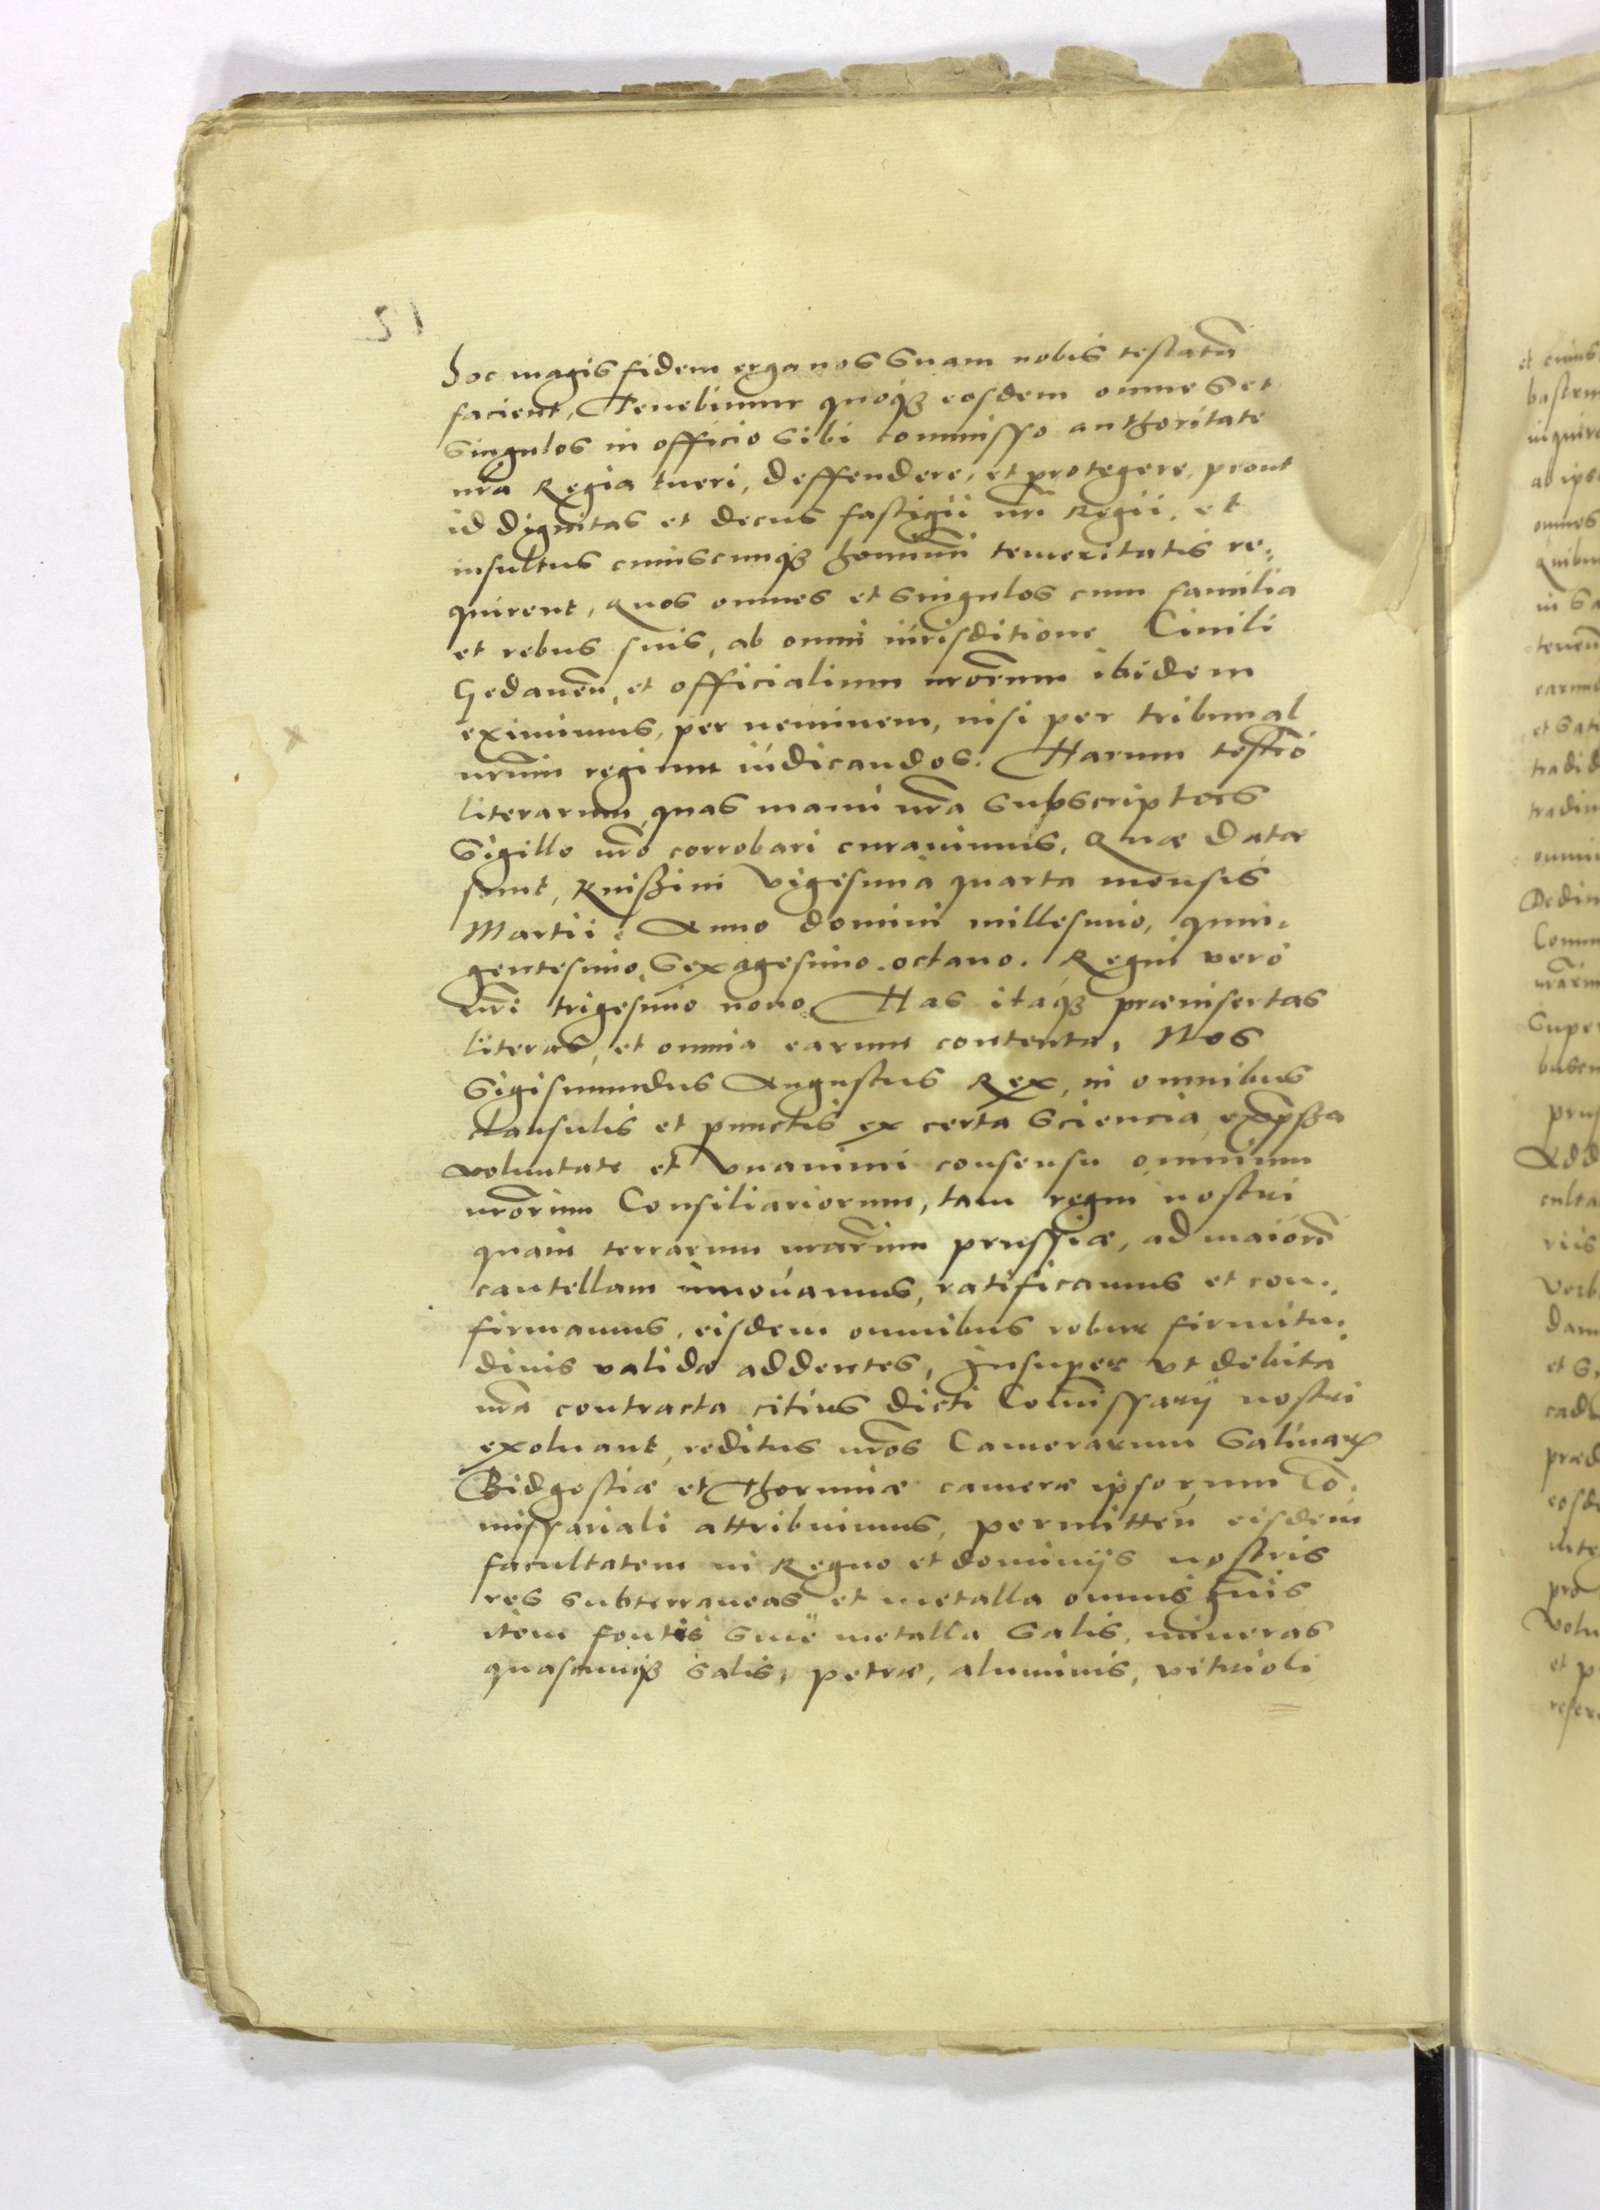 hoc magis fidem erga nos suam nobis testatã
facient, Tenebimur quoqȝ eosdem omnes et
singulos in officio sibi commisso authoritate
nr̃a Regia tueri, deffendere, et protegere, prout
id dignitas et decus fastigii nr̃i Regii, et
insultus cuiuscunqȝ hominũ temeritatis re-
quirent, quos omnes et singulos cum familia
et rebus suis, ab omni iurisditione Ciuili
Gedanen̄, et officialium nr̃orum ibidem
eximimus, per neminem, nisi per tribunal
nr̃um regium iudicandos. Harum testĩo
literarum, quas manu nr̃a subscriptas
Sigillo nr̃o corrobari curauimus, Quæ datæ
sunt, Knißini Vigesima quarta mensis
Martii: Anno domini millesimo, quin-
gentesimo, sexagesimo. octauo. Regni vero
nr̃i trigesimo nono, Has itaqȝ præinsertas
literas, et omnia earum contenta, Nos
Sigismundus Augustus Rex, in omnibus
clausulis et punctis ex certa sciencia, exp̃ßa
voluntate et vnanimi consensu omnium
nr̃orum Consiliariorum, tam regni nostri
quam terrarum nr̃arum prussiæ, ad maiorẽ
cautellam innouamus, ratificamus et con-
firmamus, eisdem omnibus robur firmitu-
dinis validæ addentes, Insuper vt debita
nr̃a contracta citius dicti Com̃issarij nostri
exoluant, reditus nr̃os Camerarum Salinarꝝ
Bidgostiæ et Thoruniæ cameræ ipsorum Cõ-
missariali attribuimus, permitten̄ eisdem
facultatem in Regno et dominijs nostris
res subterraneas et metalla omnis gñis
item fontes siue metalla salis, mineras
quascunqȝ salis, petræ, aluminis, vitrioli